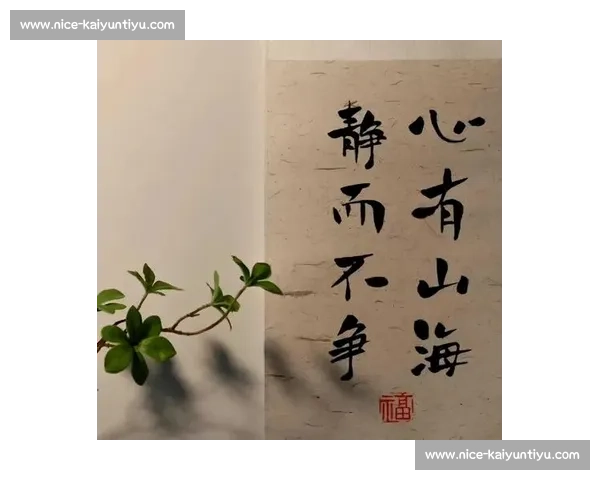 www.nice-kaiyuntiyu.com
心有山海
静而不争
福
www.nice-kaiyuntiyu.com